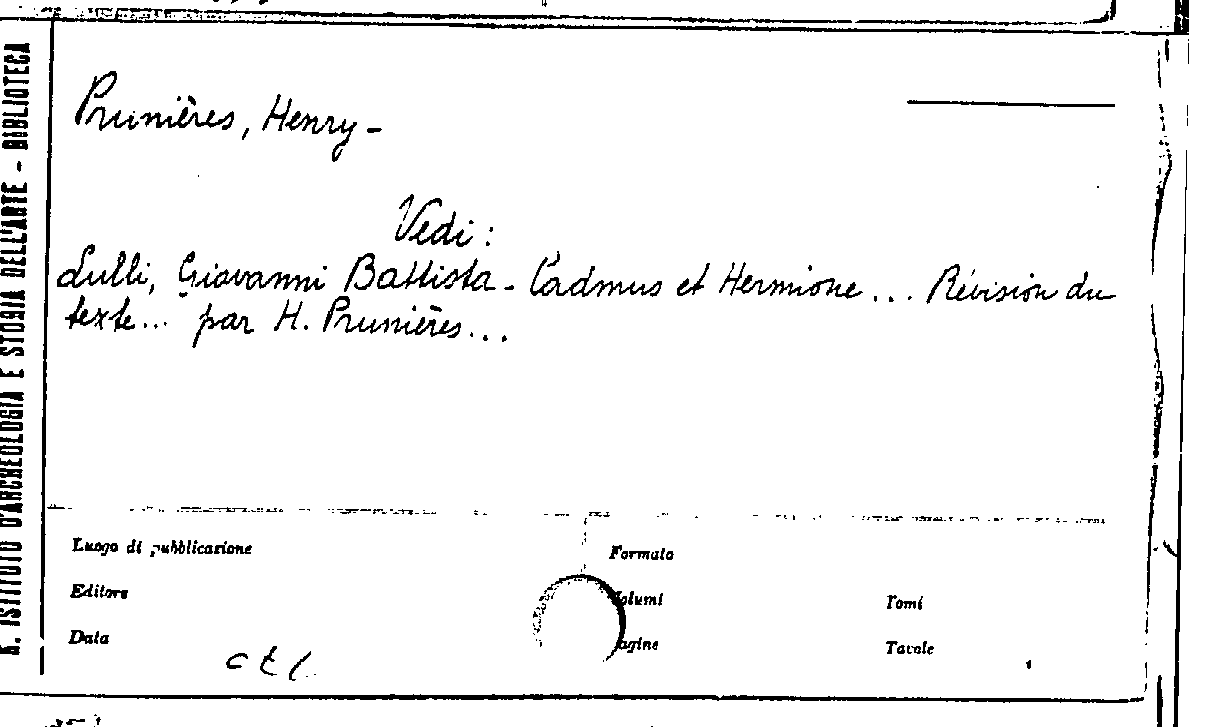 R. ISTITUTO D'ARCHEOLOGIA E STORIA DELL'ARTE - BIBLIOTECA
Prunières, Henry -
Vedi :
Lulli, Giovanni Battista - Cadmus et Hermione ... Révision du
texte ... par H. Prunières ...
Luogo di pubblicazione
Formato
Editore
Volumi
Tomi
Data
Pagine
Tavole